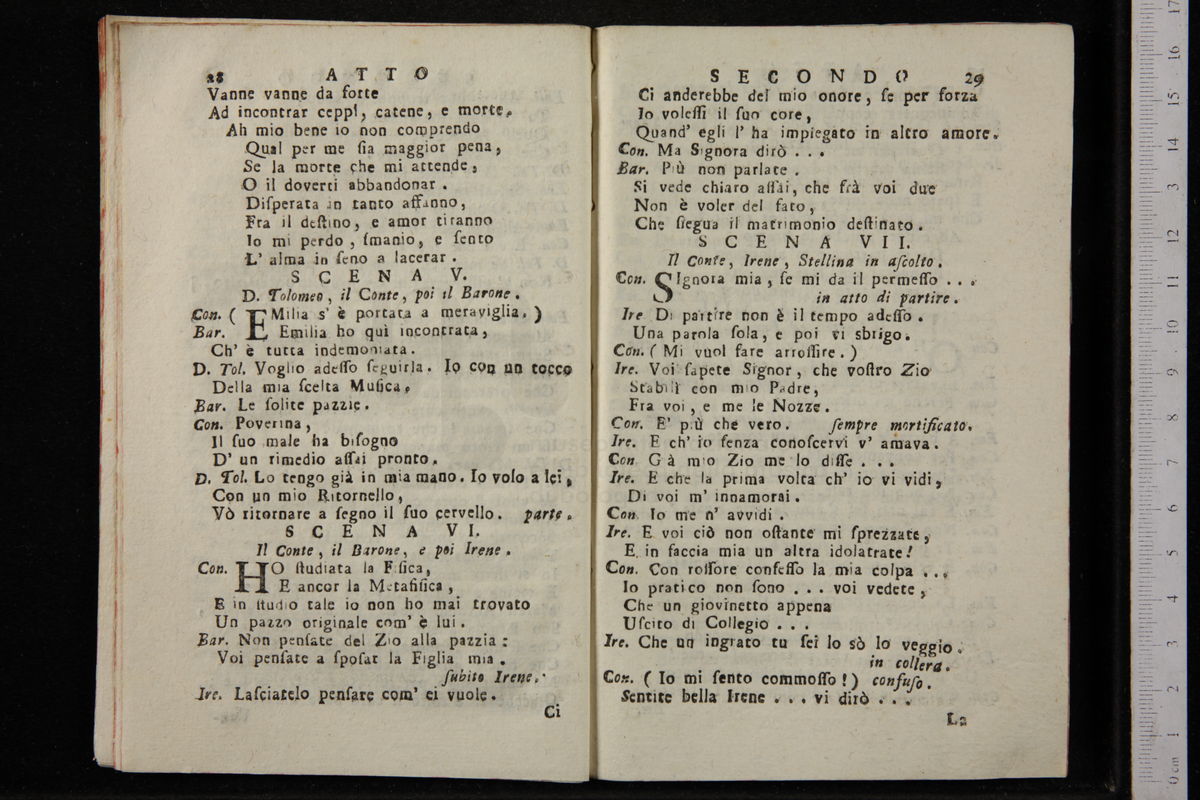 28 ATTO
Vanne vanne da forte
Ad incontrar ceppi, catene, e morte.
Ah mio bene io non comprendo
Qual per me ſia maggior pena,
Se la morte che mi attende,
O il doverti abbandonar.
Diſperata in tanto affanno,
Fra il deſtino, e amor tiranno
Io mi perdo, ſmanio, e ſento
L' alma in ſeno a lacerar.
SCENA V.
D. Tolomeo, il Conte, poi il Barone.
Con. ( EMilia s' è portata a meraviglia. )
Bar. Emilia ho quì incontrata,
Ch' è tutta indemoniata.
D. Tol. Voglio adeſſo ſeguirla. Io con un tocco
Della mia ſcelta Muſica.
Bar. Le ſolite pazzie.
Con. Poverina,
Il ſuo male ha biſogno
D' un rimedio aſſai pronto.
D. Tol. Lo tengo già in mia mano. Io volo a lei,
Con un mio Ritornello,
Vò ritornare a ſegno il ſuo cervello. parte.
SCENA VI.
Il Conte, il Barone, e poi Irene.
Con. HO ſtudiata la Fiſica,
E ancor la Metafiſica,
E in ſtudio tale io non ho mai trovato
Un pazzo originale com' è lui.
Bar. Non penſate del Zio alla pazzia:
Voi penſate a ſpoſar la Figlia mia.
ſubito Irene.
Ire. Laſciatelo penſare com' ei vuole.
Ci
SECONDO 29
Ci anderebbe del mio onore, ſe per forza
Io voleſſi il ſuo core,
Quand' egli l' ha impiegato in altro amore.
Con. Ma Signora dirò ...
Bar. Più non parlate.
Si vede chiaro aſſai, che frà voi due
Non è voler del fato,
Che ſiegua il matrimonio deſtinato.
SCENA VII.
Il Conte, Irene, Stellina in aſcolto.
Con. SIgnora mia, ſe mi da il permeſſo ...
in atto di partire.
Ire Di partire non è il tempo adeſſo.
Una parola ſola, e poi vi sbrigo.
Con. ( Mi vuol fare arroſſire. )
Ire. Voi ſapete Signor, che voſtro Zio
Stabilì con mio Padre,
Fra voi, e me le Nozze.
Con. E' più che vero. ſempre mortificato.
Ire. E ch' io ſenza conoſcervi v' amava.
Con Già mio Zio me lo diſſe ...
Ire. E che la prima volta ch' io vi vidi,
Di voi m' innamorai.
Con. Io me n' avvidi.
Ire. E voi ciò non oſtante mi ſprezzate,
E in faccia mia un altra idolatrate!
Con. Con roſſore confeſſo la mia colpa ...
Io pratico non ſono ... voi vedete,
Che un giovinetto appena
Uſcito di Collegio ...
Ire. Che un ingrato tu ſei lo sò lo veggio.
in collera.
Con. ( Io mi ſento commoſſo! ) confuſo.
Sentite bella Irene ... vi dirò ...
La